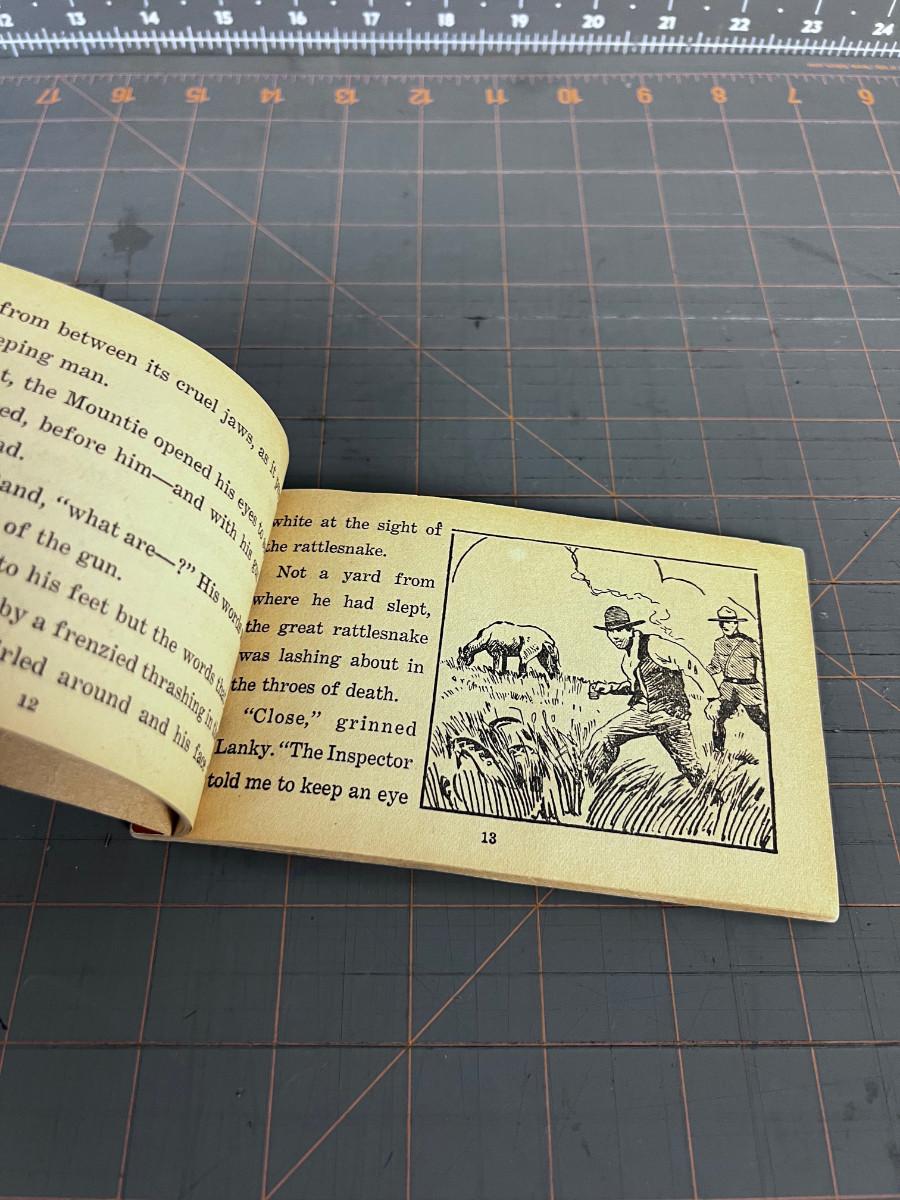 12 13 14 15 16 17 18 19 20 21 22 23 24
17 16 15 14 13 12 11 10 9 8 7 6
from between its cruel jaws, as it
eping man.
t, the Mountie opened his eyes to
ed, before him—and with his
ad.
and, "what are—?" His words
of the gun.
to his feet but the words
by a frenzied thrashing in
irled around and his face
12
white at the sight of
the rattlesnake.
Not a yard from
where he had slept,
the great rattlesnake
was lashing about in
the throes of death.
"Close," grinned
Lanky. "The Inspector
told me to keep an eye
13